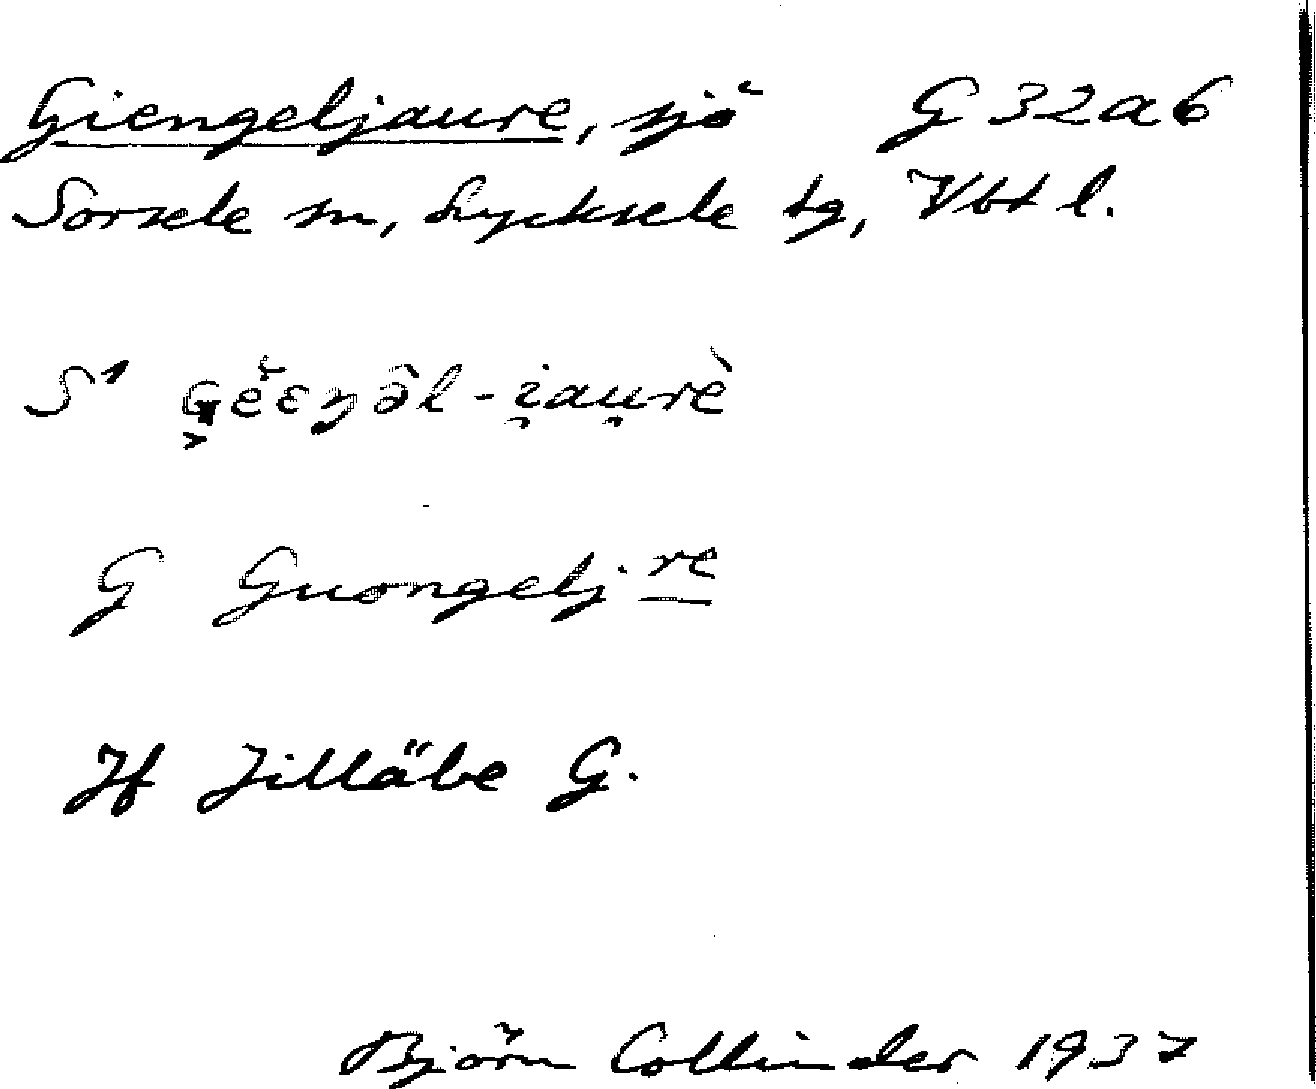 Giengeljaure, sjö G 32a6
Sorsele sn, Lycksele tg, Vbt l.
S¹ G̬ĕ̀ɛŋə̑l-i̯au̯rè
G Guongelj. re
Jf Jilläbe G.
Björn Collinder 1937